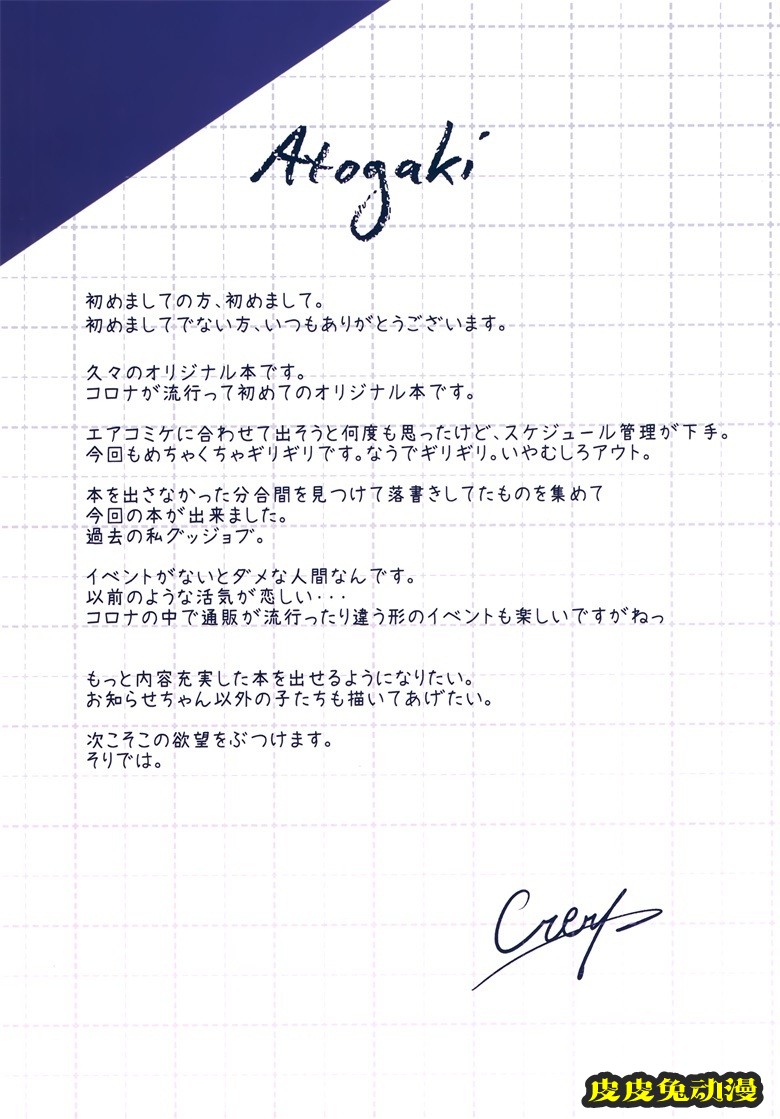 Atogaki
初めましての方、初めまして。
初めましてでない方、いつもありがとうございます。
久々のオリジナル本です。
コロナが流行って初めてのオリジナル本です。
エアコミケに合わせて出そうと何度も思ったけど、スケジュール管理が下手。
今回もめちゃくちゃギリギリです。なうでギリギリ。いやむしろアウト。
本を出さなかった分合間を見つけて落書きしてたものを集めて
今回の本が出来ました。
過去の私グッジョブ。
イベントがないとダメな人間なんです。
以前のような活気が恋しい・・・
コロナの中で通販が流行ったり違う形のイベントも楽しいですがねっ
もっと内容充実した本を出せるようになりたい。
お知らせちゃん以外の子たちも描いてあげたい。
次こそこの欲望をぶつけます。
そりでは。
皮皮兔动漫